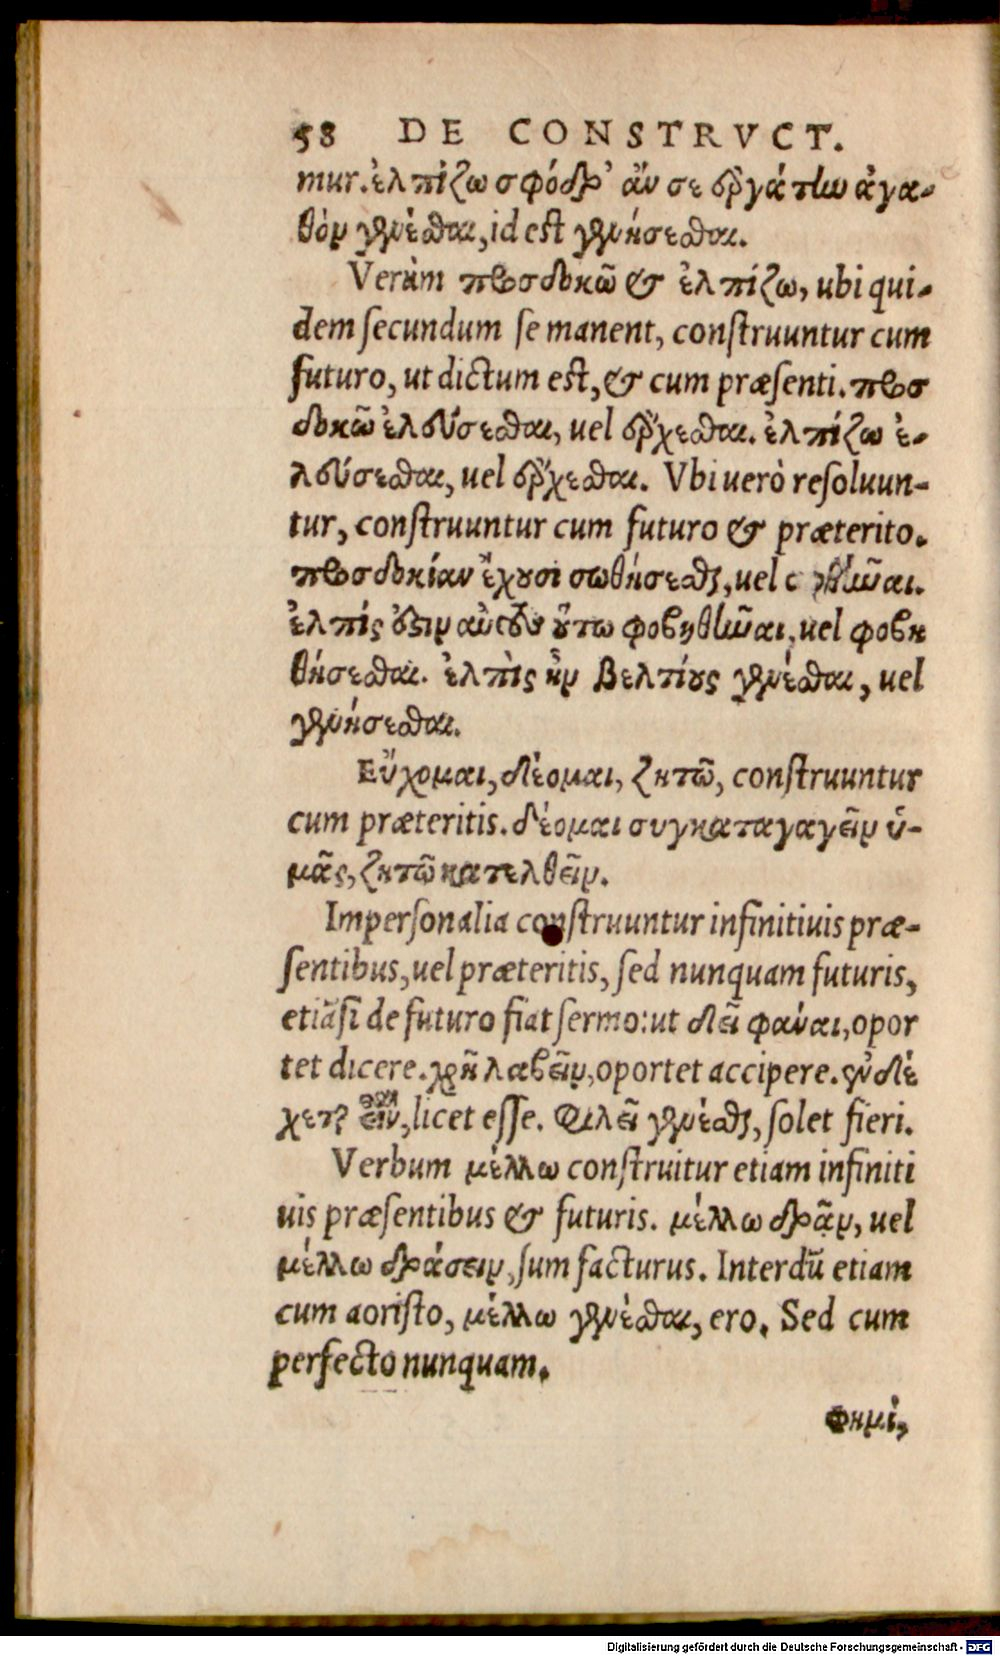 58 DE CONSTRVCT.
mur. ἐλπίζω σφόδρ' ἄν σε ἐργάτην ἀγα-
θὸν γενέσθαι, id est γενήσεσθαι.
Verùm προσδοκῶ & ἐλπίζω, ubi qui-
dem secundum se manent, construuntur cum
futuro, ut dictum est, & cum præsenti. προσ
δοκῶ ἐλεύσεσθαι, uel ἔρχεσθαι. ἐλπίζω ἐ-
λεύσεσθαι, uel ἔρχεσθαι. Vbi uerò resoluun-
tur, construuntur cum futuro & præterito.
προσδοκίαν ἔχουσι σωθήσεσθαι, uel
ἐλπίς ὅξιν οὕτω φοβηθῆναι, uel φοβη
θήσεσθαι. ἐλπὶς ἦν βελτίους γενέσθαι, uel
γενήσεσθαι.
Εὔχομαι, δέομαι, ζητῶ, construuntur
cum præteritis. δέομαι συγκαταγαγεῖν ὑ-
μᾶς, ζητῶ κατελθεῖν.
Impersonalia construuntur infinitiuis præ-
sentibus, uel præteritis, sed nunquam futuris,
etiāsi de futuro fiat sermo: ut δεῖ φάναι, opor
tet dicere. χρῆ λαβεῖν, oportet accipere. ἐνδέ
χεται εἶν, licet esse. Φιλεῖ γενέσθαι, solet fieri.
Verbum μέλλω construitur etiam infiniti
uis præsentibus & futuris. μέλλω δρᾶν, uel
μέλλω δράσειν, sum facturus. Interdū etiam
cum aoristo, μέλλω γενέσθαι, ero. Sed cum
perfecto nunquam.
Φημὶ,
Digitalisierung gefördert durch die Deutsche Forschungsgemeinschaft - DFG